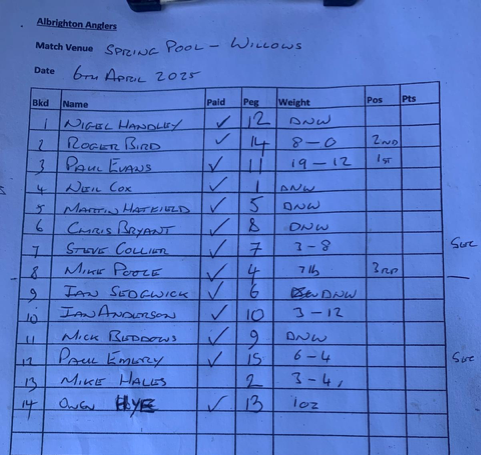 Albrighton Anglers
Match Venue SPRING POOL - WILLOWS
Date 6TH APRIL 2025
Bkd Name Paid Peg Weight Pos Pts
1 NIGEL HANDLEY ✓ 12 DNW
2 ROGER BIRD ✓ 14 8-0 2ND
3 PAUL EVANS ✓ 11 19-12 1ST
4 NEIL COX ✓ 1 DNW
5 MARTIN HATFIELD ✓ 5 DNW
6 CHRIS BRYANT ✓ 8 DNW
7 STEVE COLLIER ✓ 7 3-8 SEC
8 MIKE POOLE ✓ 4 7lb 3RD
9 IAN SEDGWICK ✓ 6 DNW
10 IAN ANDERSON ✓ 10 3-12
11 MICK BEDDOWS ✓ 9 DNW
12 PAUL EMERY ✓ 15 6-4 SEC
13 MIKE HALES 2 3-4
14 OWEN ✓ 13 1oz